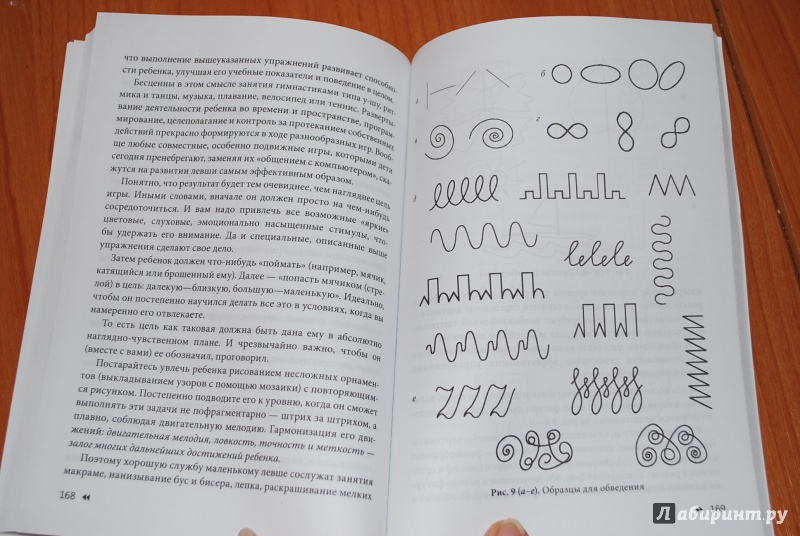 что выполнение вышеуказанных упражнений развивает способно-
сти ребенка, улучшая его учебные показатели и поведение в целом.
Бесценны в этом смысле занятия гимнастиками типа у-шу, рит-
мика и танцы, музыка, плавание, велосипед или теннис. Разверты-
вание деятельности ребенка во времени и пространстве, програм-
мирование, целеполагание и контроль за протеканием собственных
действий прекрасно формируются в ходе разнообразных игр. Вооб-
ще любые совместные, особенно подвижные игры, которыми дети
сегодня пренебрегают, заменяя их «общением с компьютером», ска-
жутся на развитии левши самым эффективным образом.
Понятно, что результат будет тем очевиднее, чем нагляднее цель
игры. Иными словами, вначале он должен просто на чем-нибудь
сосредоточиться. И вам надо привлечь все возможные «яркие»
цветовые, слуховые, эмоционально насыщенные стимулы, что-
бы удержать его внимание. Да и специальные, описанные выше
упражнения сделают свое дело.
Затем ребенок должен что-нибудь «поймать» (например, мячик,
катящийся или брошенный ему). Далее — «попасть мячиком (стре-
лой) в цель: далекую—близкую, большую—маленькую». Идеально,
чтобы он постепенно научился делать все это в условиях, когда вы
намеренно его отвлекаете.
То есть цель как таковая должна быть дана ему в абсолютно
наглядно-чувственном плане. И чрезвычайно важно, чтобы он
(вместе с вами) ее обозначил, проговорил.
Постарайтесь увлечь ребенка рисованием несложных орнамен-
тов (выкладыванием узоров с помощью мозаики) с повторяющим-
ся рисунком. Постепенно подводите его к уровню, когда он сможет
выполнять эти задачи не пофрагментарно — штрих за штрихом, а
плавно, соблюдая двигательную мелодию. Гармонизация его дви-
жений: двигательная мелодия, ловкость, точность и меткость —
залог многих дальнейших достижений ребенка.
Поэтому хорошую службу маленькому левше сослужат занятия
макраме, нанизывание бус и бисера, лепка, раскрашивание мелких
168
а
б
в
г
д
е
Рис. 9 (а–е). Образцы для обведения
169
Лабиринт.ру